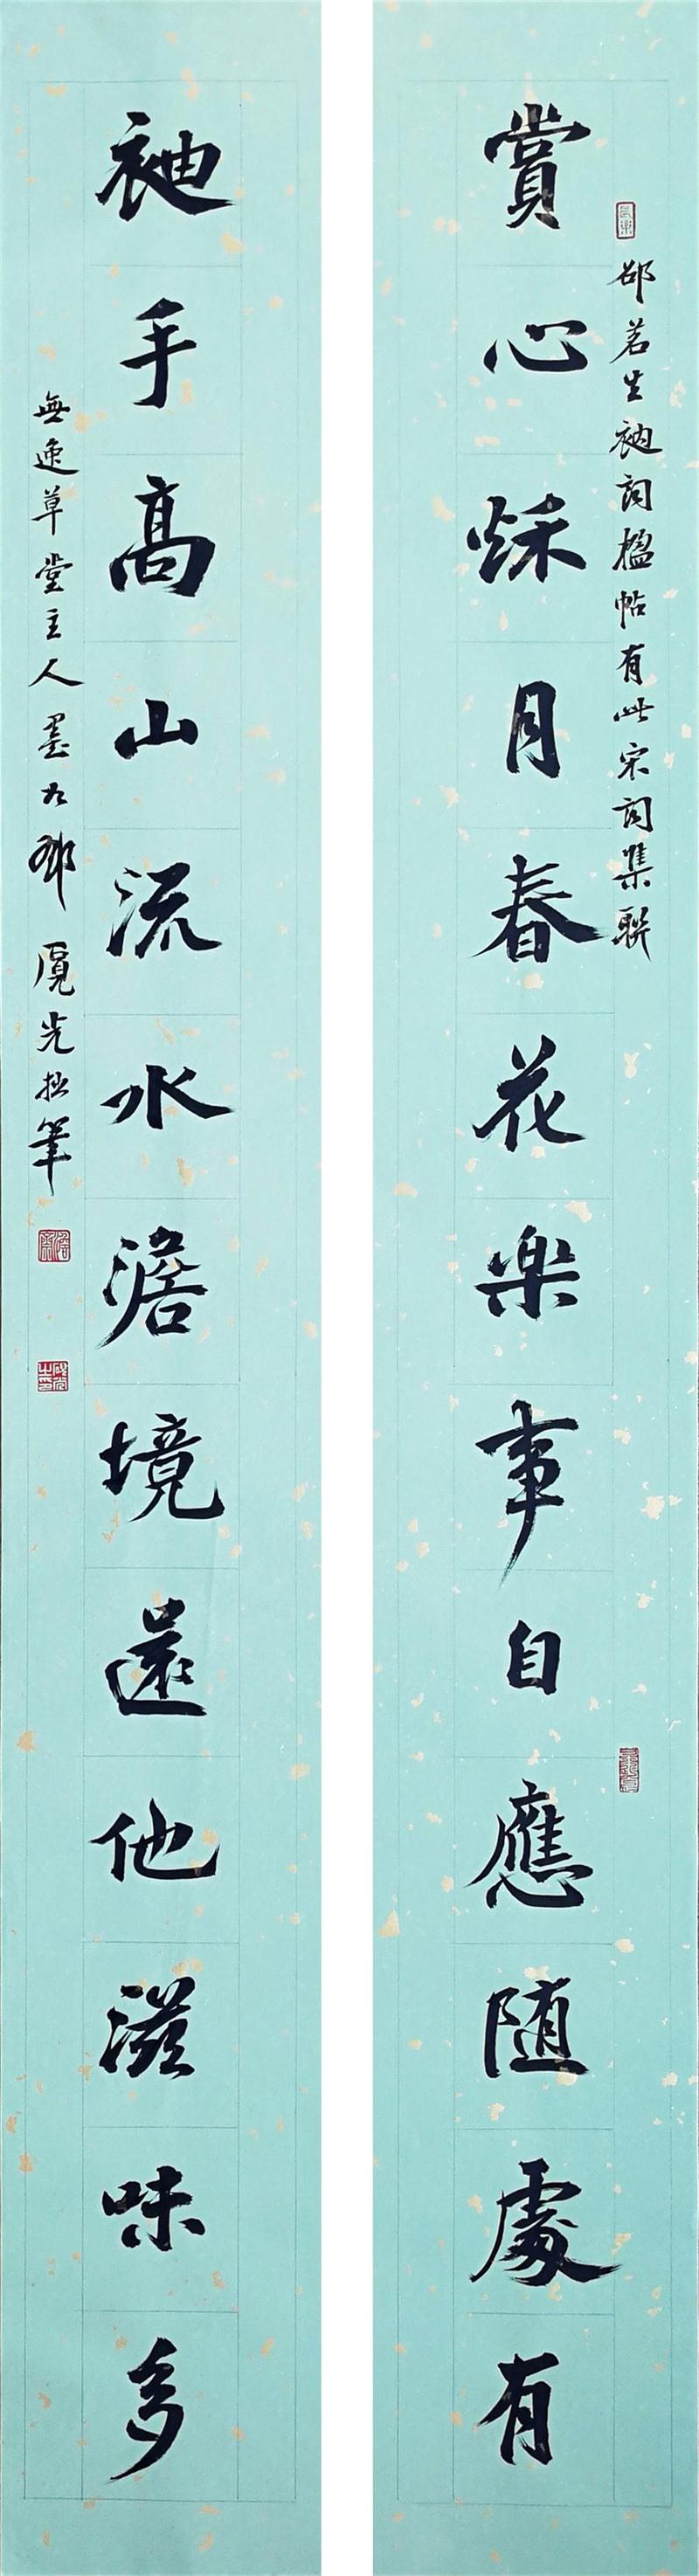 邵茗生衲詞楹帖有此宋詞集聯
賞心秌月春花樂事自應隨處有
袖手高山流水澹境還他滋味多
無逸草堂主人墨九鄧
先拙筆